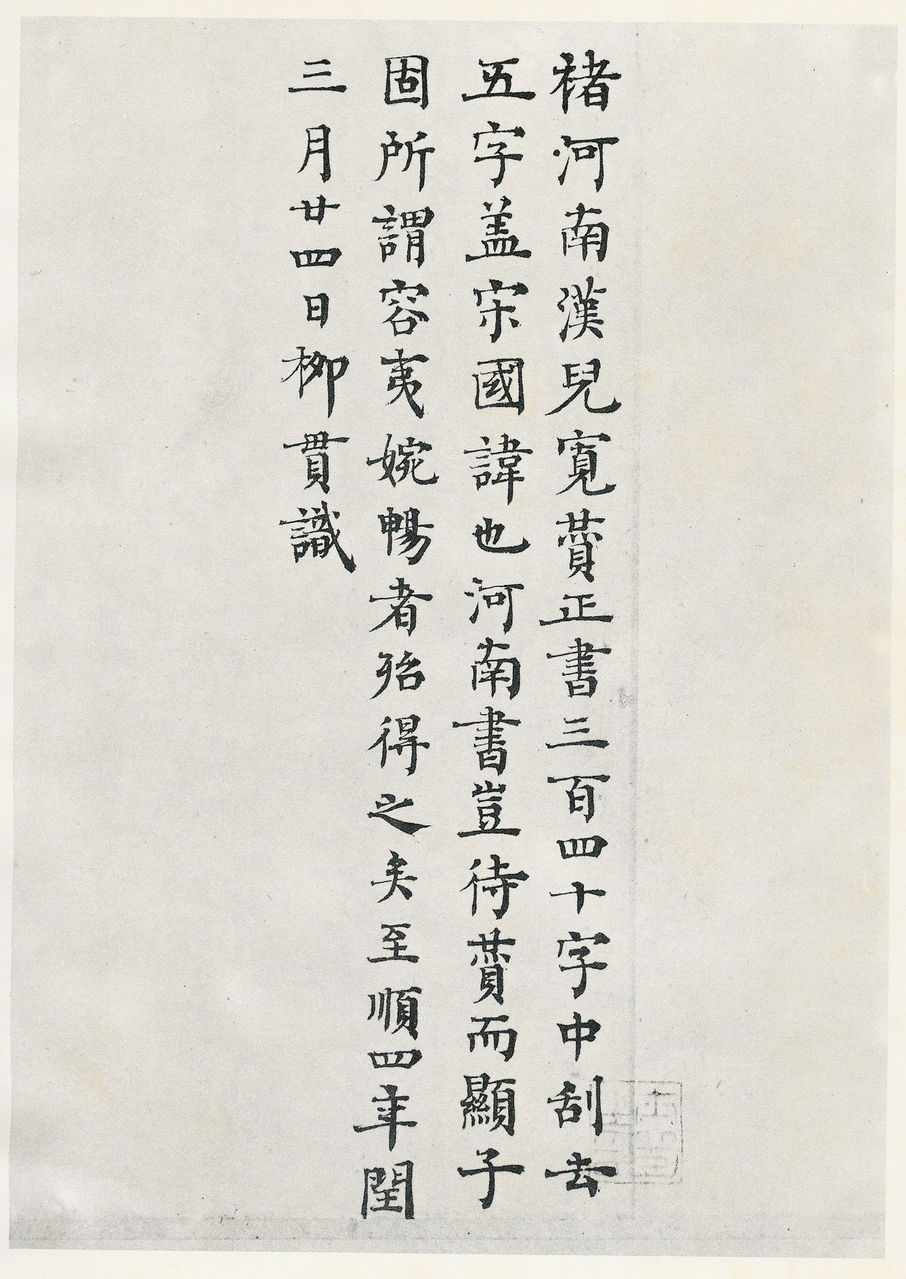 褚河南漢兒寬贊正書三百四十字中刮去
五字盖宋國諱也河南書豈待贊而顯子
固所謂容夷婉暢者殆得之矣至順四年閏
三月廿四日柳貫識